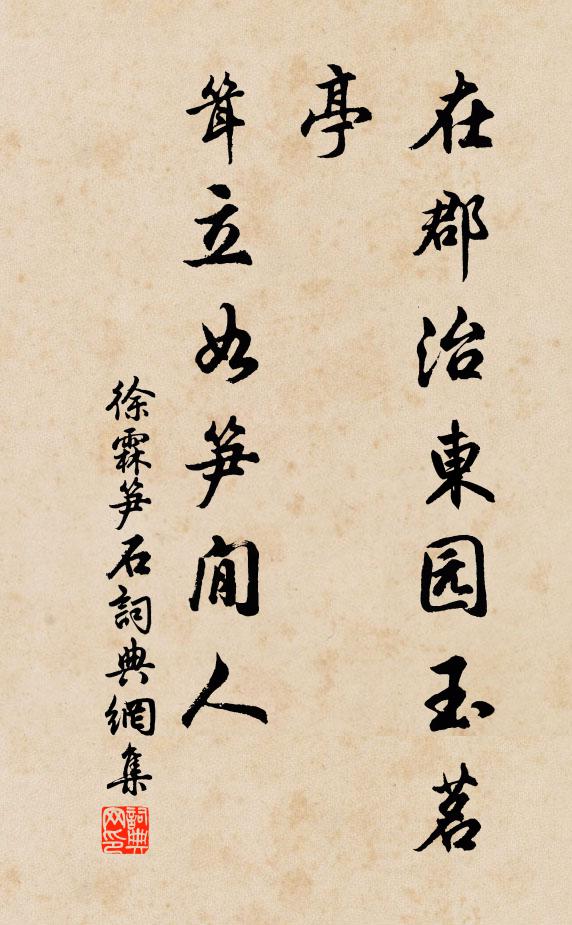 在郡治東园玉茗
亭
耸立如笋間人
徐霖笋石詞典網集
詞典网印